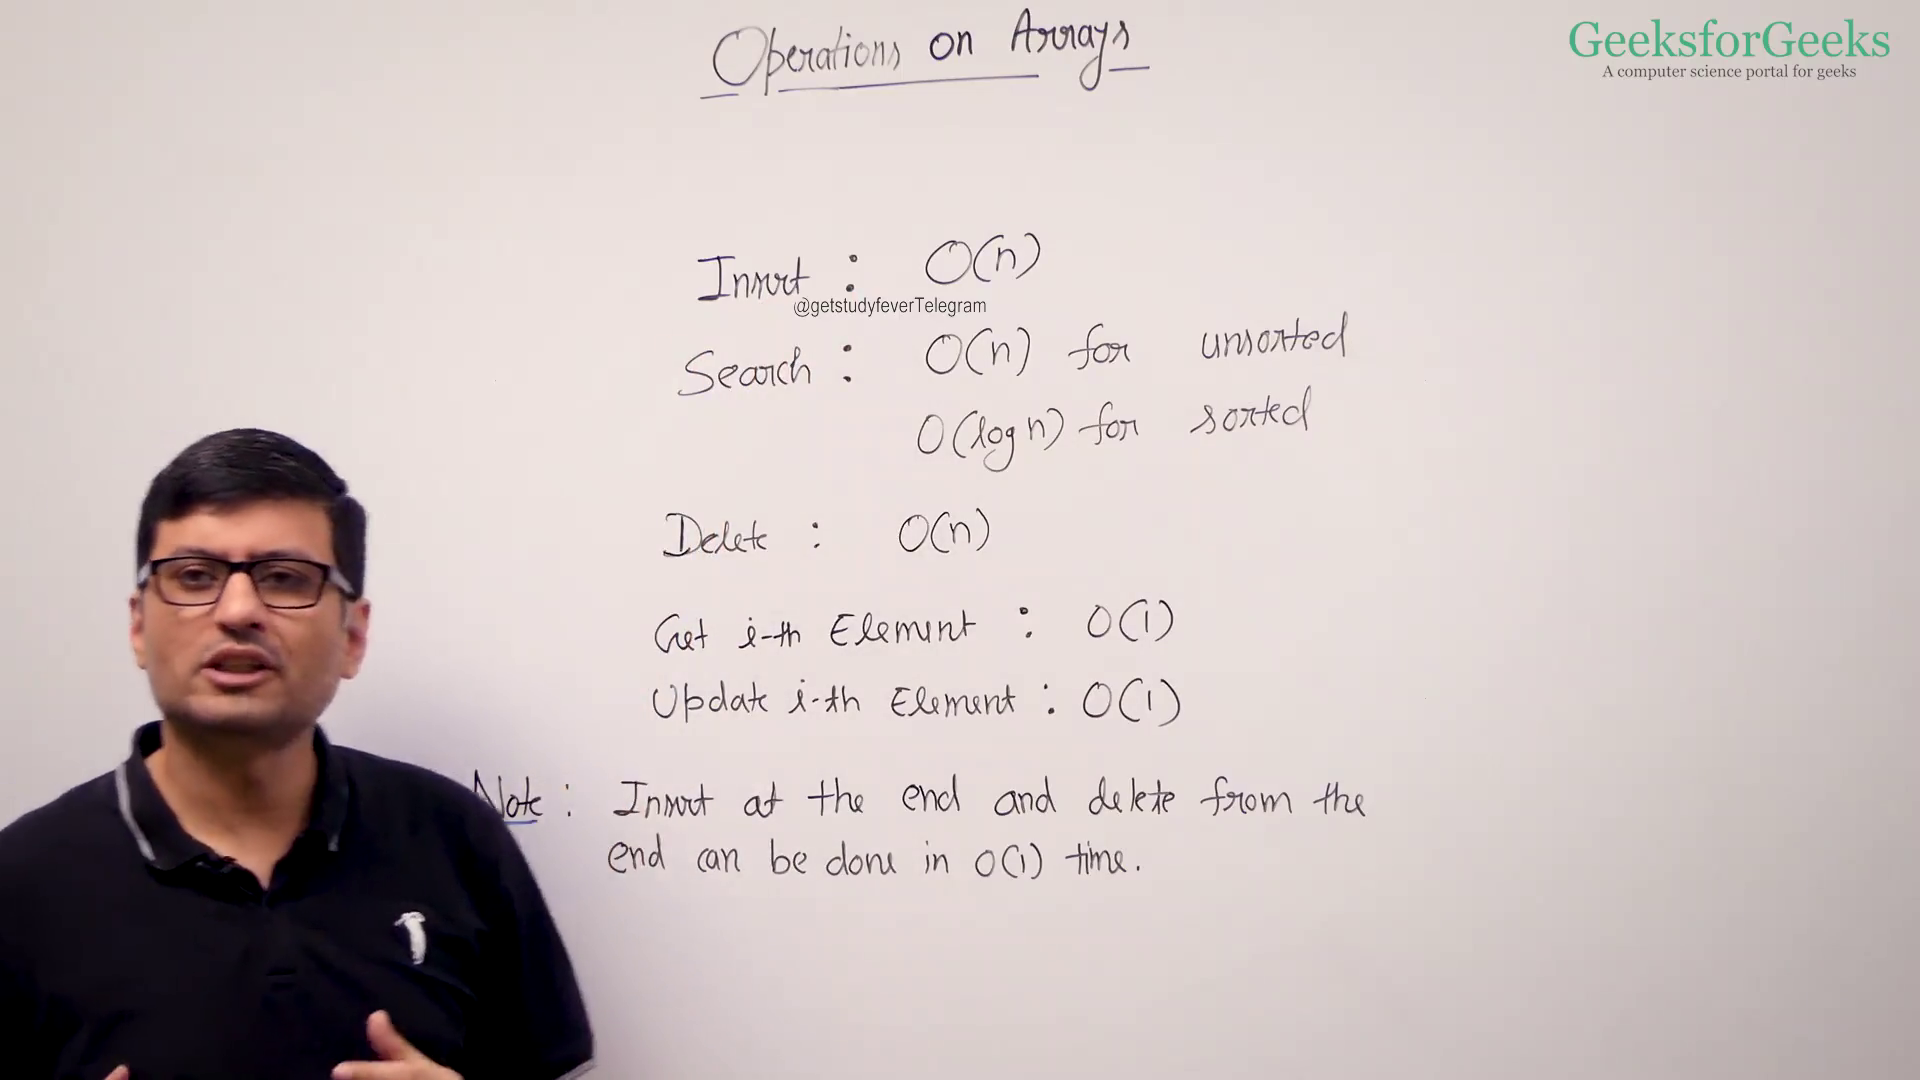 Operations on Arrays
GeeksforGeeks
A computer science portal for geeks
Insert : O(n)
@getstudyfeverTelegram
Search : O(n) for unsorted
O(log n) for sorted
Delete : O(n)
Get i-th Element : O(1)
Update i-th Element : O(1)
Note : Insert at the end and delete from the
end can be done in O(1) time.